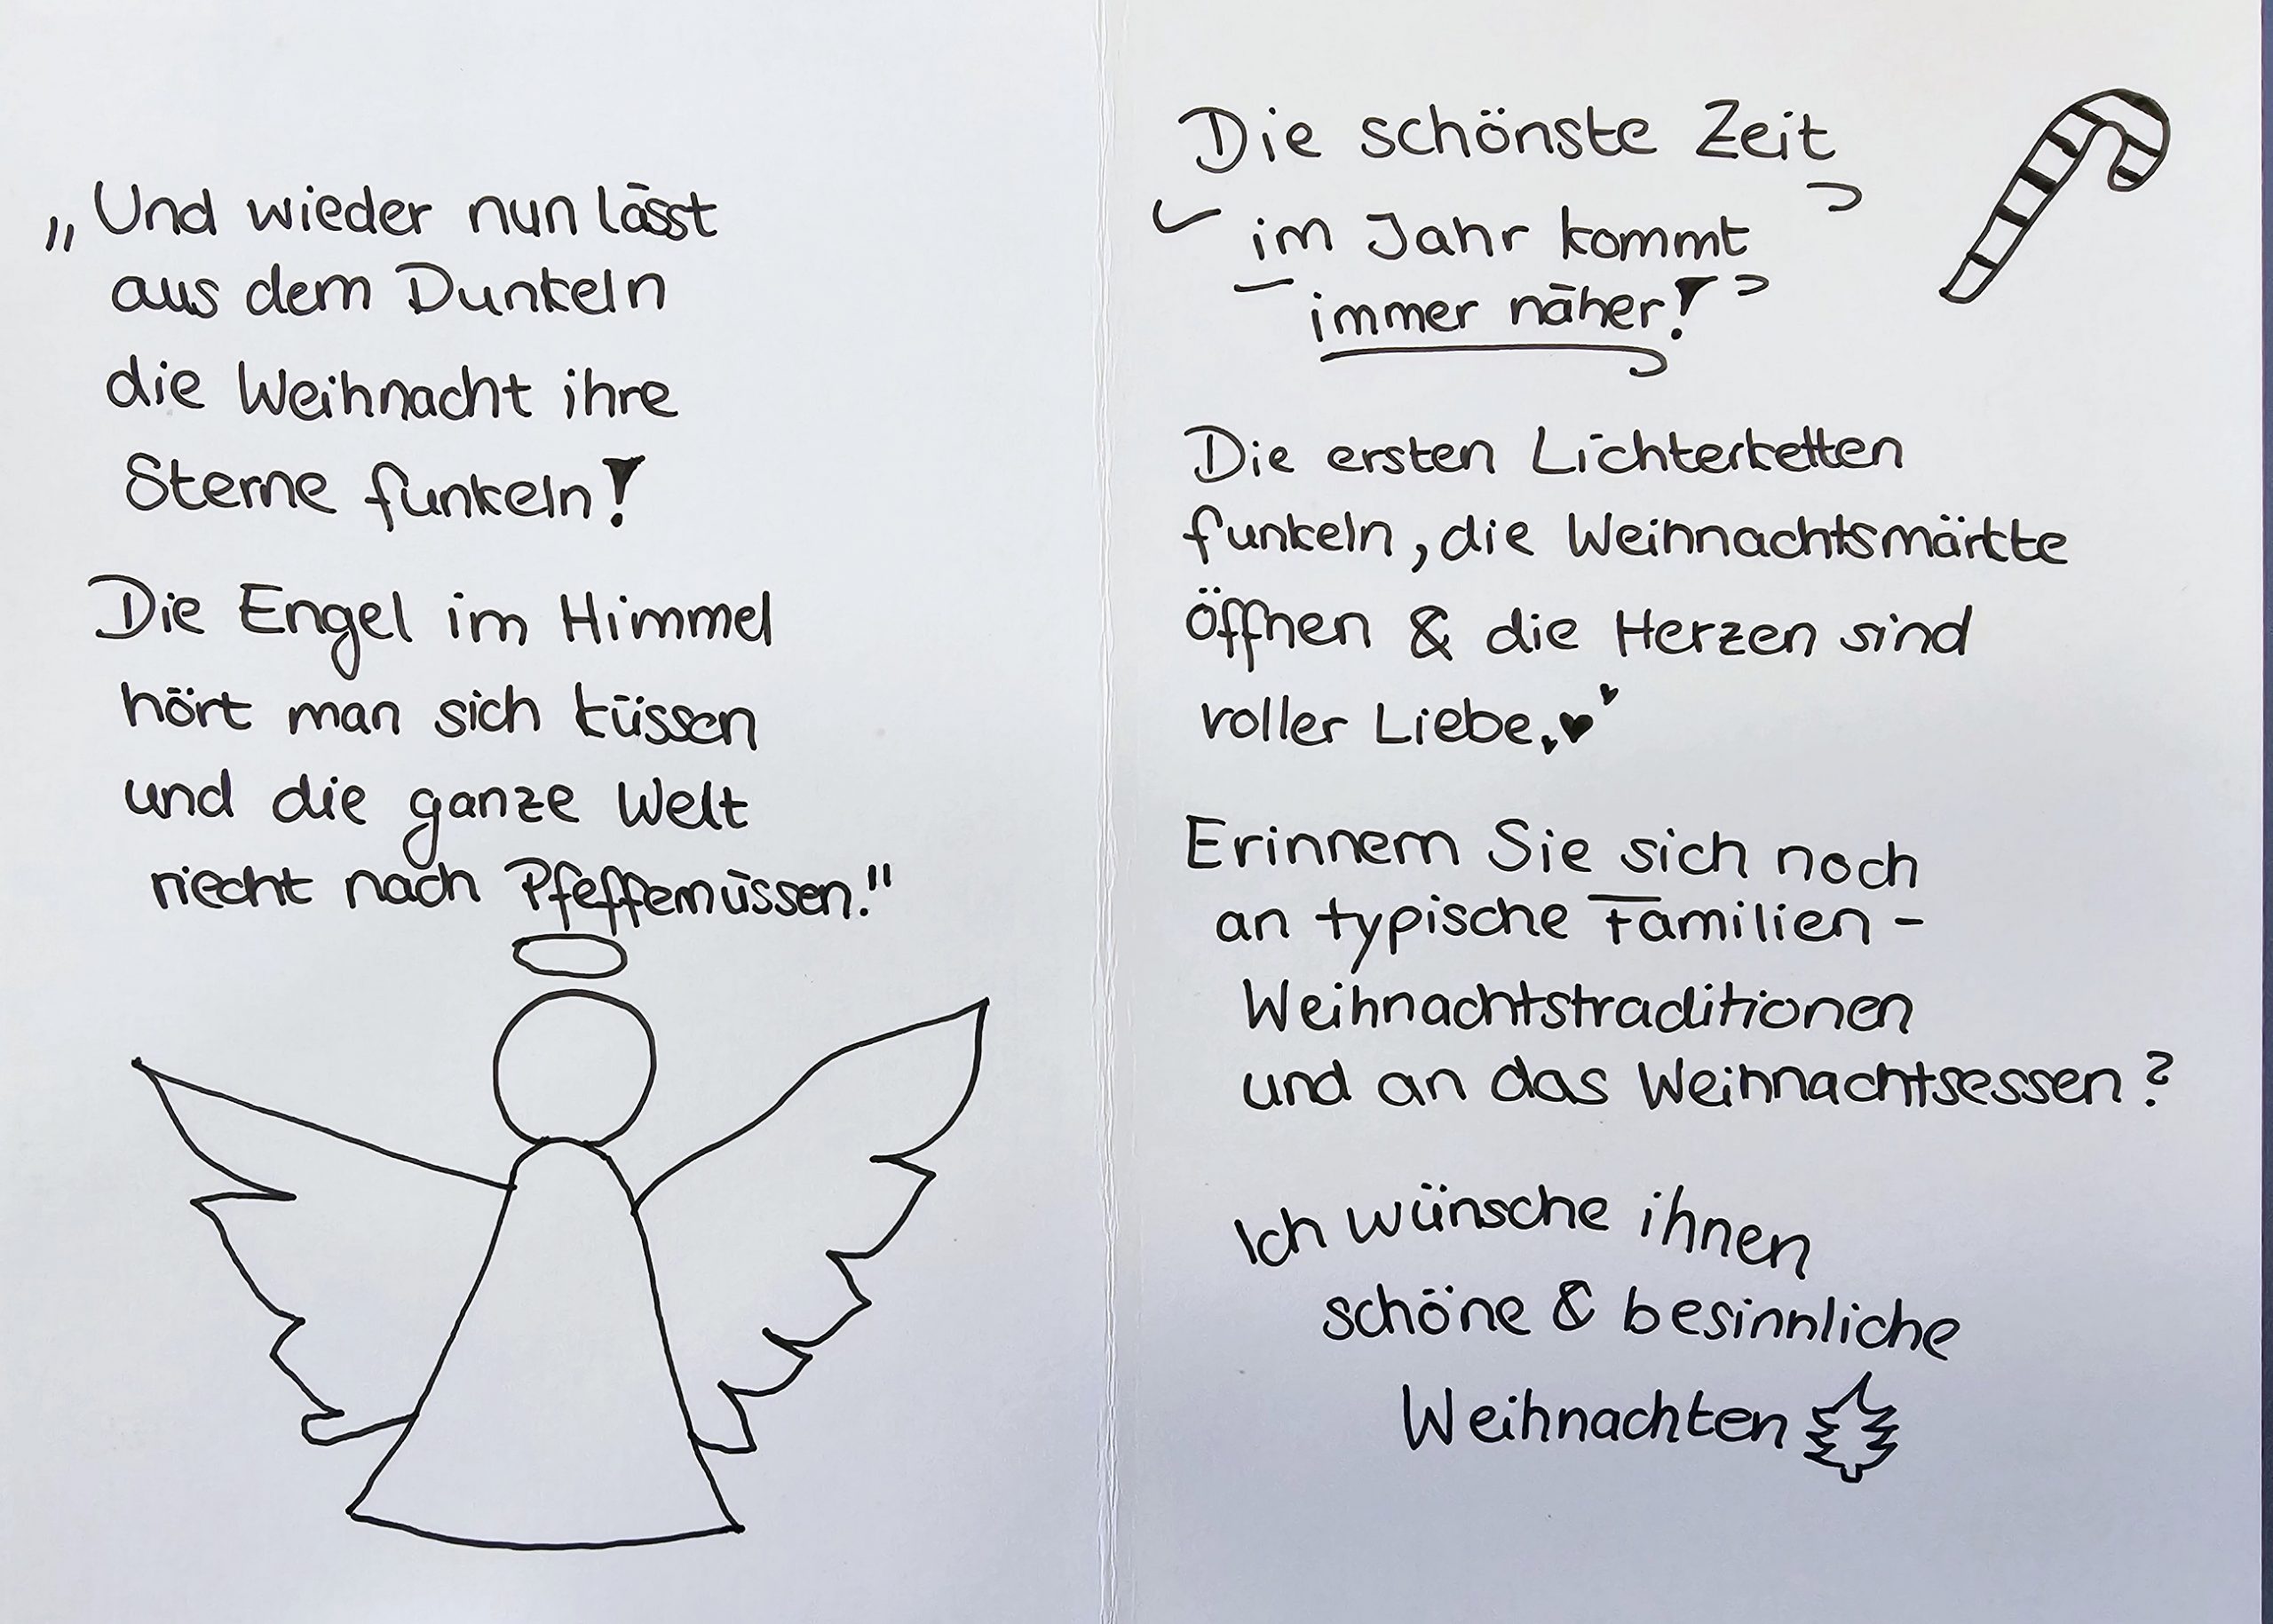 „Und wieder nun lässt
aus dem Dunkeln
die Weihnacht ihre
Sterne funkeln!
Die Engel im Himmel
hört man sich küssen
und die ganze Welt
riecht nach Pfeffernüssen."
Die schönste Zeit
im Jahr kommt
immer näher!
Die ersten Lichterketten
funkeln, die Weihnachtsmärkte
öffnen & die Herzen sind
voller Liebe.
Erinnern Sie sich noch
an typische Familien-
Weihnachtstraditionen
und an das Weihnachtsessen?
Ich wünsche ihnen
schöne & besinnliche
Weihnachten